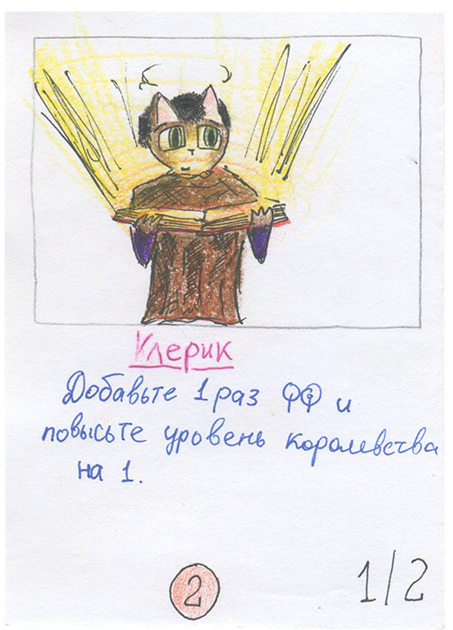 Клерик
Добавьте 1 раз и
повысьте уровень королевства
на 1.
2
1/2